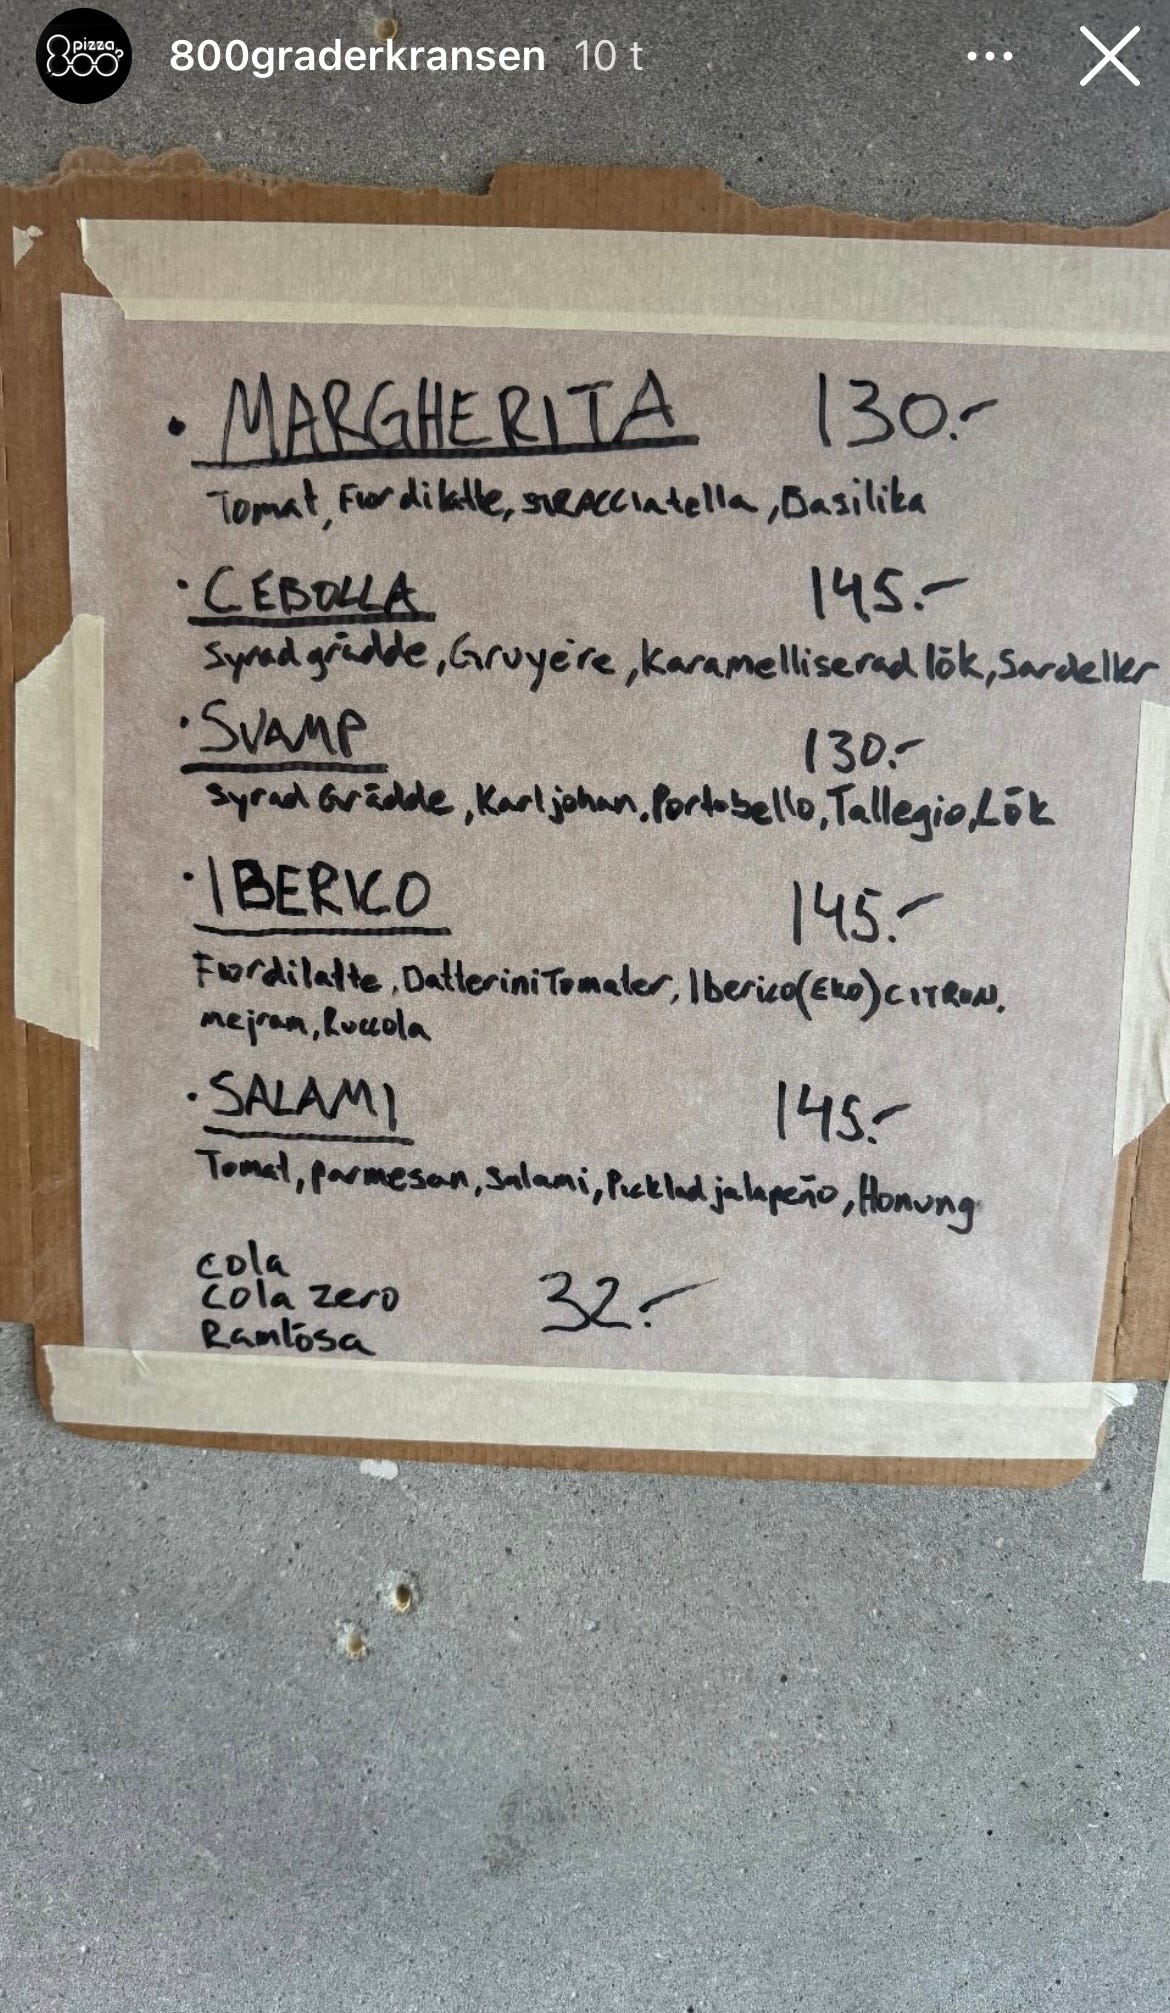 pizza
800°
800graderkransen 10 t
• MARGHERITA 130.-
Tomat, Fiordilatte, STRACCIAtella, Basilika
• CEBOLLA 145.-
Syrad grädde, Gruyére, Karamelliserad lök, Sardeller
• SVAMP 130.-
Syrad Grädde, Karljohan, Portobello, Tallegio, Lök
• IBERICO 145.-
Fiordilatte, Datterini Tomater, Iberico (EKO) CITRON,
mejram, Ruccola
• SALAMI 145.-
Tomat, parmesan, Salami, Picklad jalapeño, Honung
Cola
Cola Zero 32.-
Ramlösa